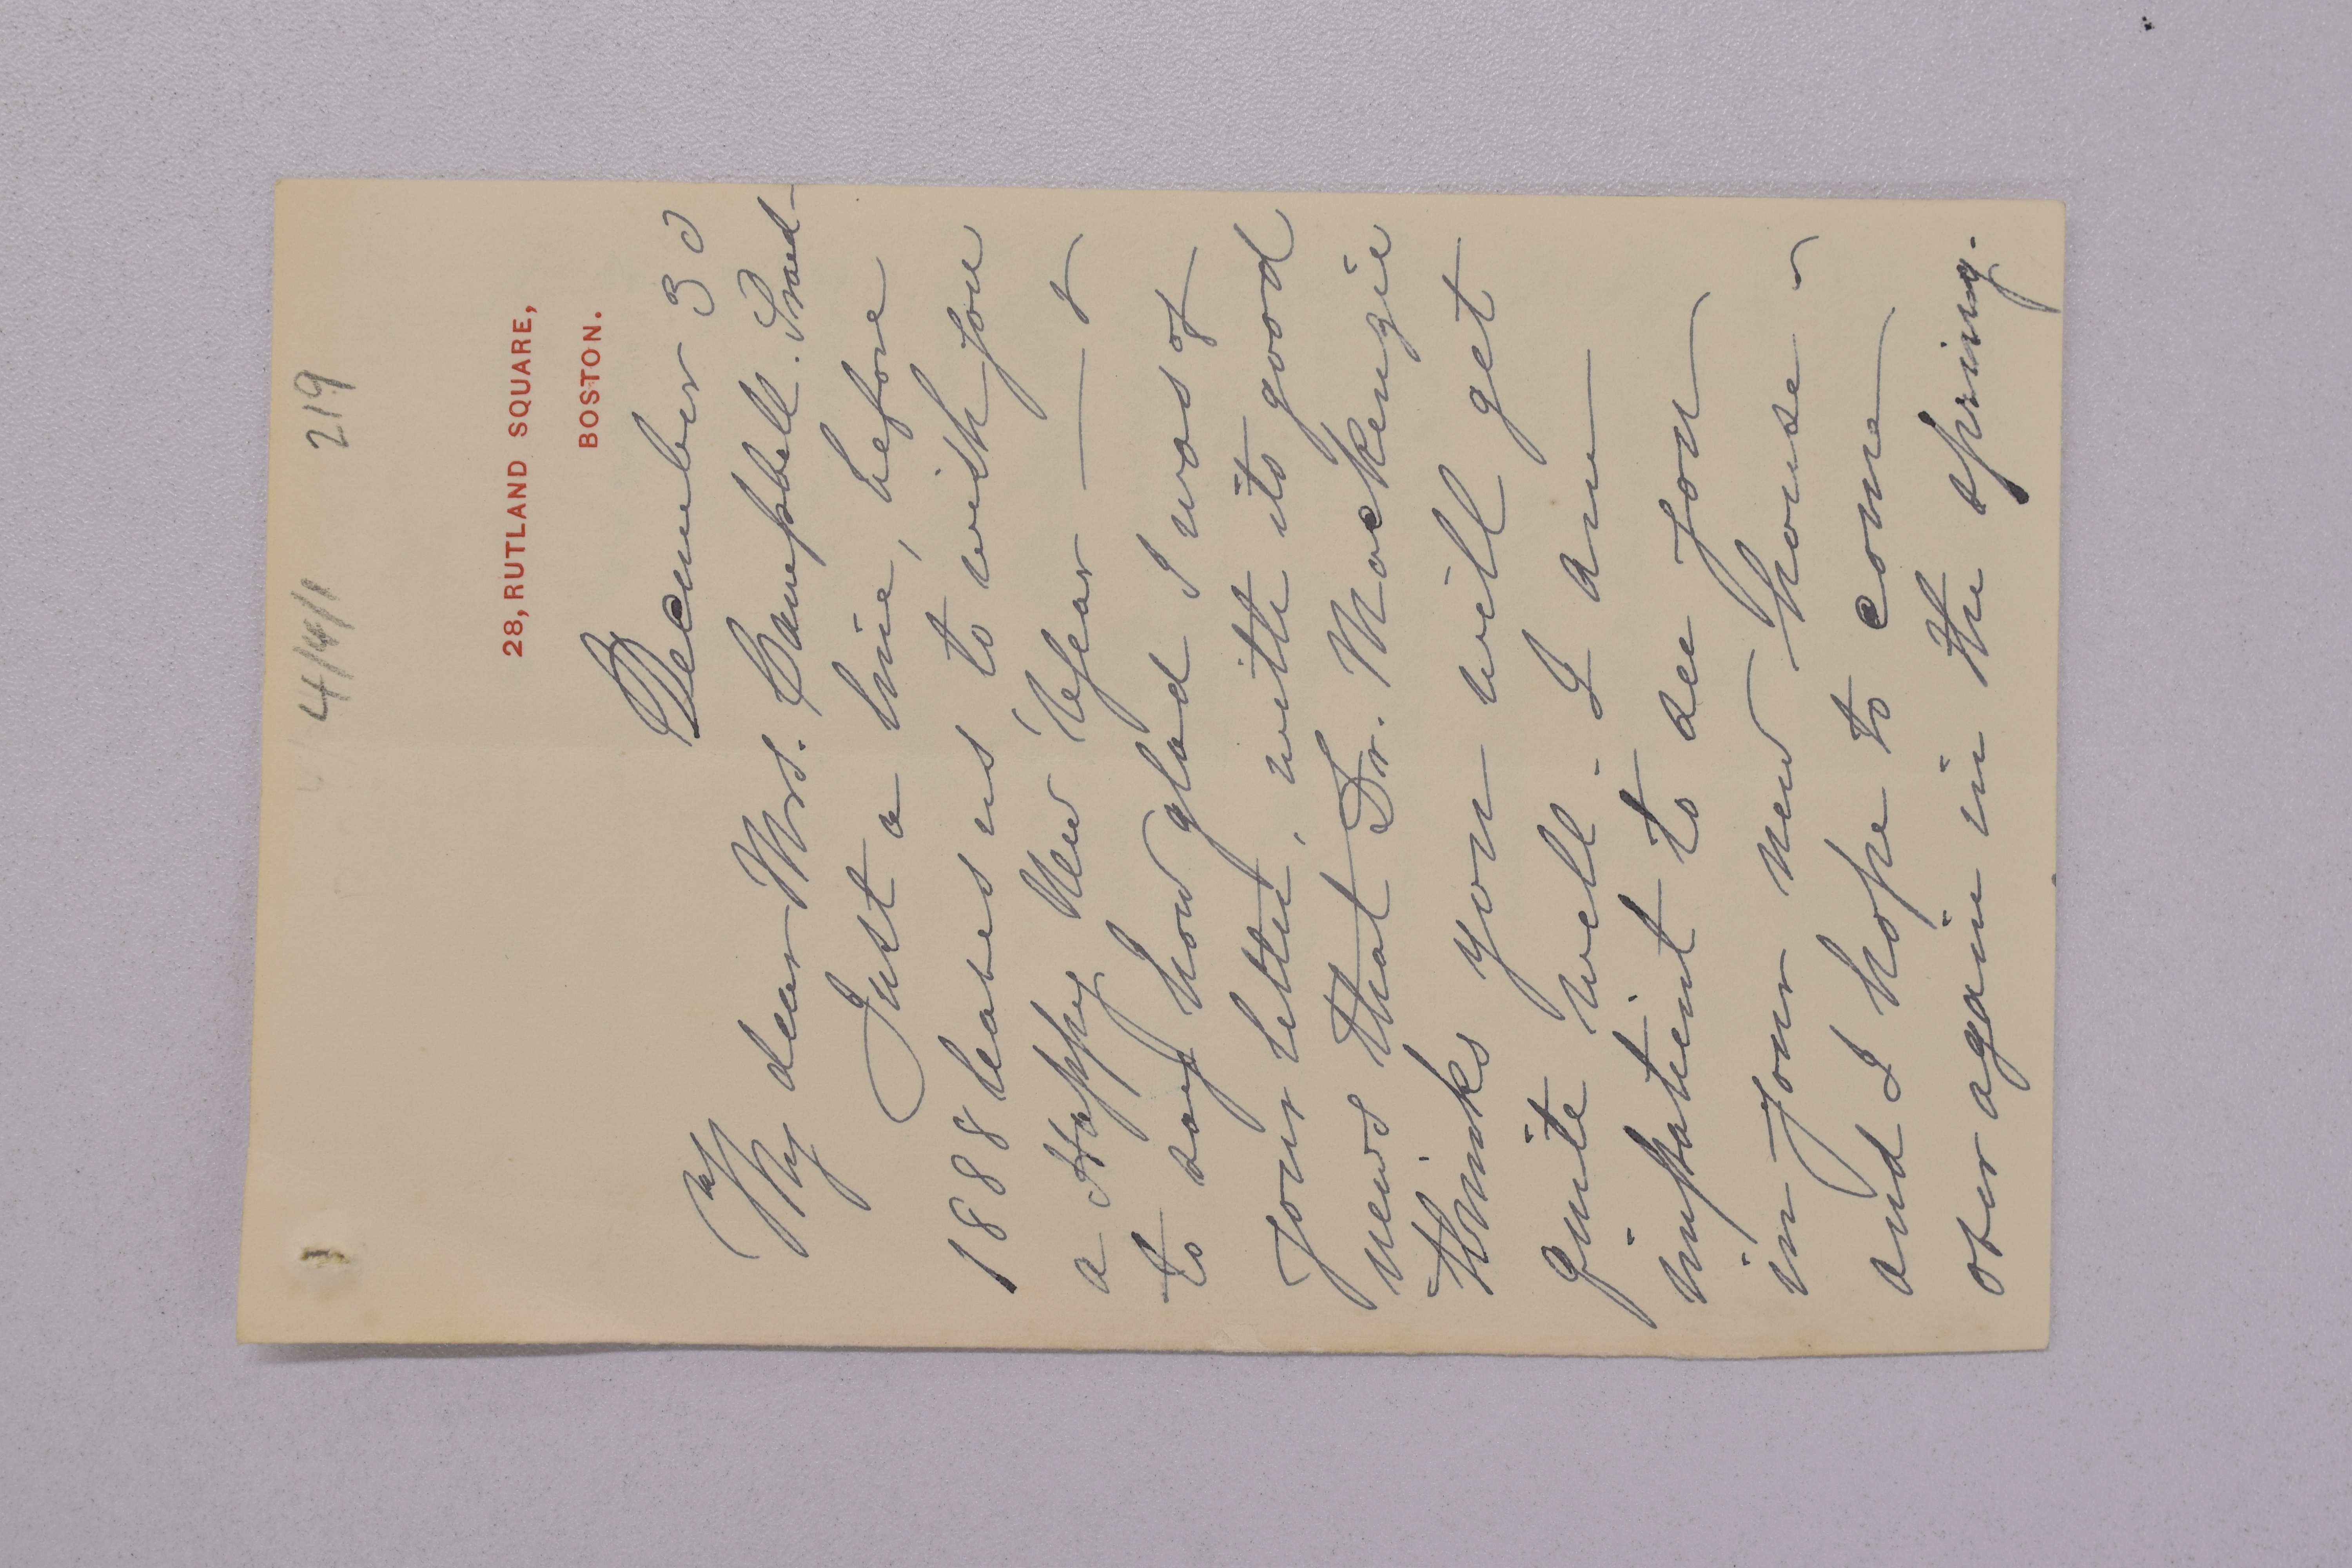 4/4/1 219
28, RUTLAND SQUARE,
BOSTON.
December 30
My dear Mrs. Campbell-Praed-
Just a line, before
1888 leaves us to wish you
a Happy New Year — &
to say how glad I was of
your letter, with its good
news that Dr. Mackenzie
thinks you will get
quite well. I am
impatient to see you
in your new house -
and I hope to come
over again in the spring.